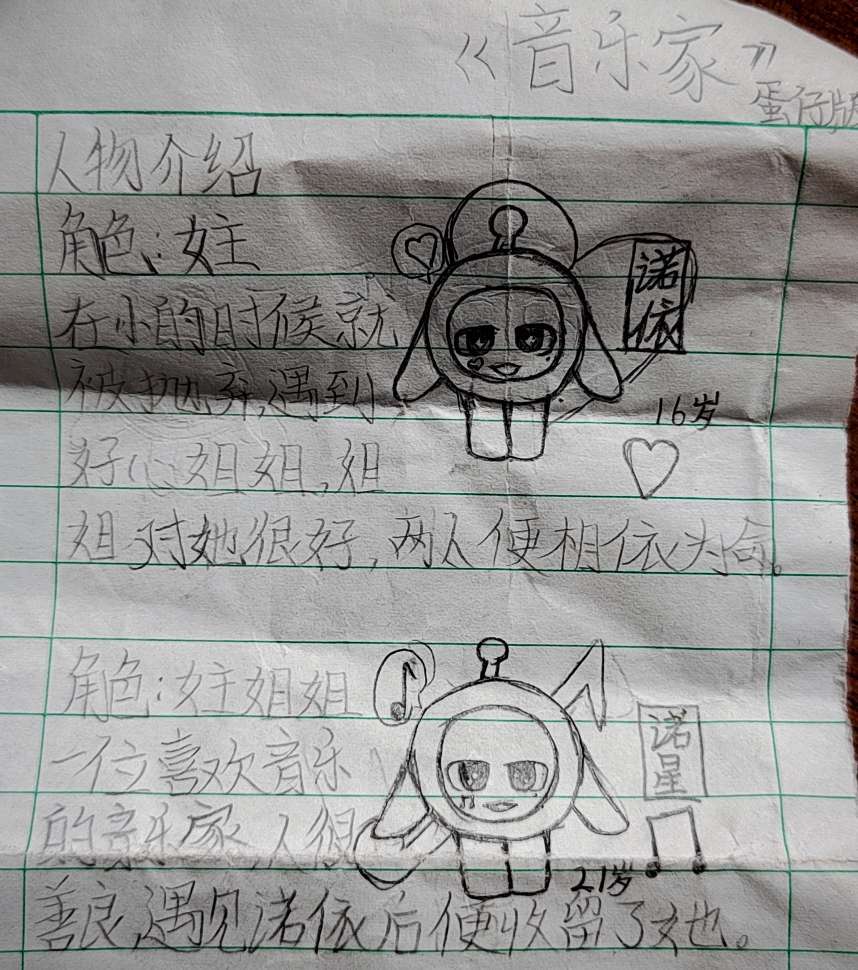 《音乐家》
蛋仔版
人物介绍
角色：女主
在小的时候就
被抛弃,遇到
好心姐姐,姐
姐对她很好,两人便相依为命。
诺依
16岁
角色：女主姐姐
一位喜欢音乐
的音乐家,人很
善良,遇见诺依后便收留了她。
诺星
21岁